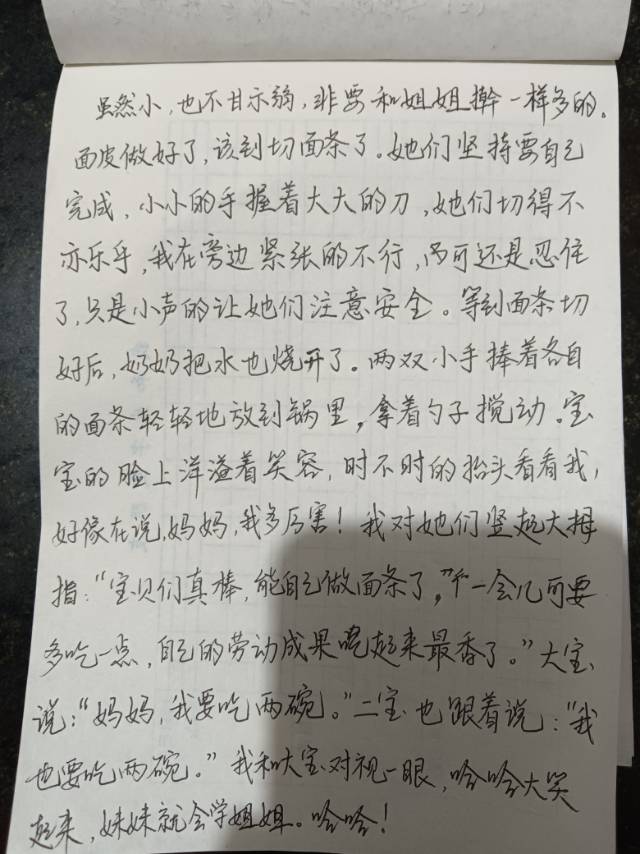 虽然小，也不甘示弱，非要和姐姐擀一样多的。
面皮做好了，该到切面条了。她们坚持要自己
完成，小小的手握着大大的刀，她们切得不
亦乐乎，我在旁边紧张的不行，可还是忍住
了，只是小声的让她们注意安全。等到面条切
好后，奶奶把水也烧开了。两双小手捧着各自
的面条轻轻地放到锅里，拿着勺子搅动。宝
宝的脸上洋溢着笑容，时不时的抬头看看我，
好像在说，妈妈，我多厉害！我对她们竖起大拇
指：“宝贝们真棒，能自己做面条了，”“一会儿可要
多吃一点，自己的劳动成果吃起来最香了。”大宝
说：“妈妈，我要吃两碗。”二宝也跟着说：“我
也要吃两碗。”我和大宝对视一眼，哈哈大笑
起来，妹妹就会学姐姐。哈哈！